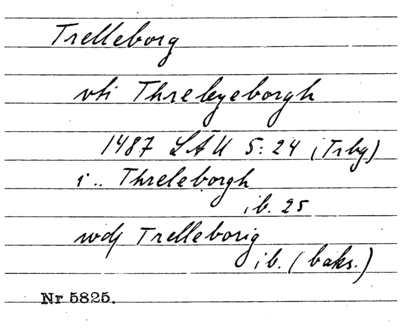 Trelleborg
vti Threlgeborgh
1487 LÄU 5:24 (Trbg)
i .. Threleborgh
ib. 25
wdj Trelleborig
ib. (baks.)
Nr 5825.